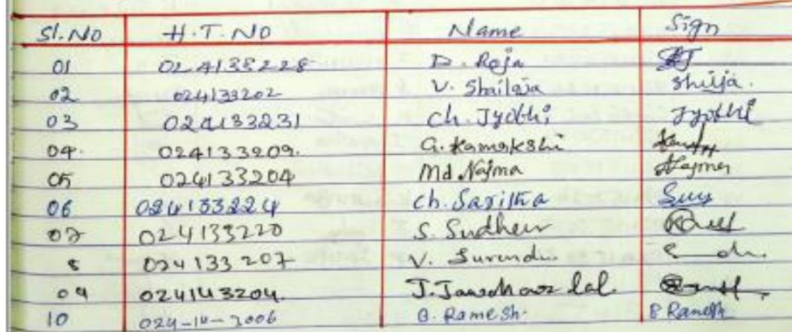 Sl.No H.T.No Name Sign
01 024133228 D. Roja
02 024133202 V. Shailaja Shilja.
03 024133231 Ch. Jyothi Jyothi
04. 024133209. G. Kamakshi
05 024133204 Md Najma Najma
06 024133224 Ch. Saritha
07 024133220 S. Sudheer
8 024133207 V. Surendr
09 024143204. J. Jawahar lal.
10 024-14-3006 B. Ramesh. B Ramesh